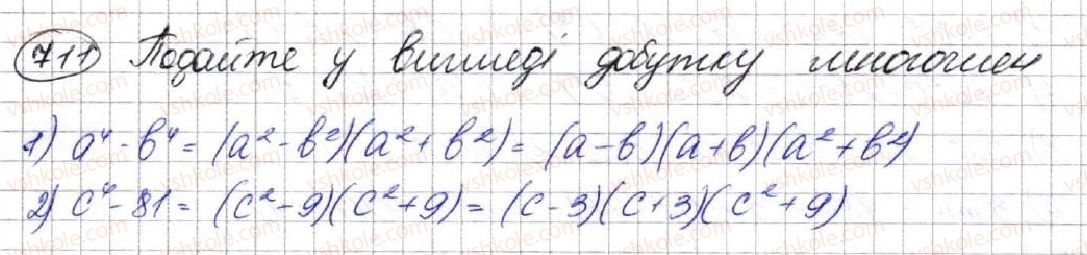 711 Подайте у вигляді добутку многочлен
1) a⁴ - b⁴ = (a² - b²)(a² + b²) = (a - b)(a + b)(a² + b²)
2) c⁴ - 81 = (c² - 9)(c² + 9) = (c - 3)(c + 3)(c² + 9)